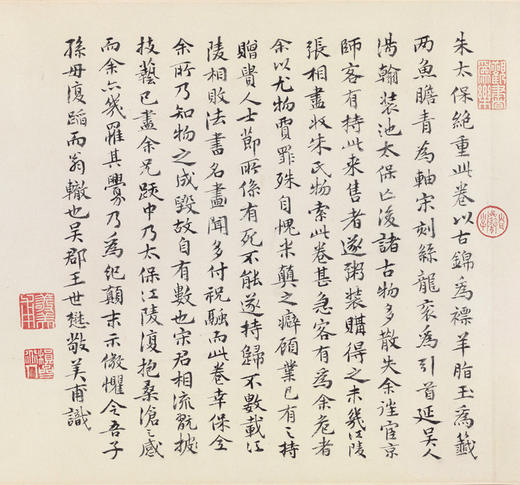 朱太保絕重此卷以古錦為褾羊脂玉為籤
两魚膽青為軸宋刻絲龍袞為引首延吳人
湯翰装池太保亡後諸古物多散失余往宦京
師客有持此来售者遂粥装購得之未幾江陵
張相盡收朱氏物索此卷甚急客有為余危者
余以尤物賈罪殊自愧米顛之癖顧業已有之持
贈貴人士節所係有死不能遂持歸不數載江
陵相敗法書名畫聞多付祝融而此卷幸保全
余所乃知物之成毀故自有數也宋君相流翫披
技藝已盡余兄跋中乃太保江陵復抱桑滄之感
而余亦幾罹其釁乃為紀顛末示儆懼令吾子
孫毋復蹈而翁轍也吳郡王世懋敬美甫識